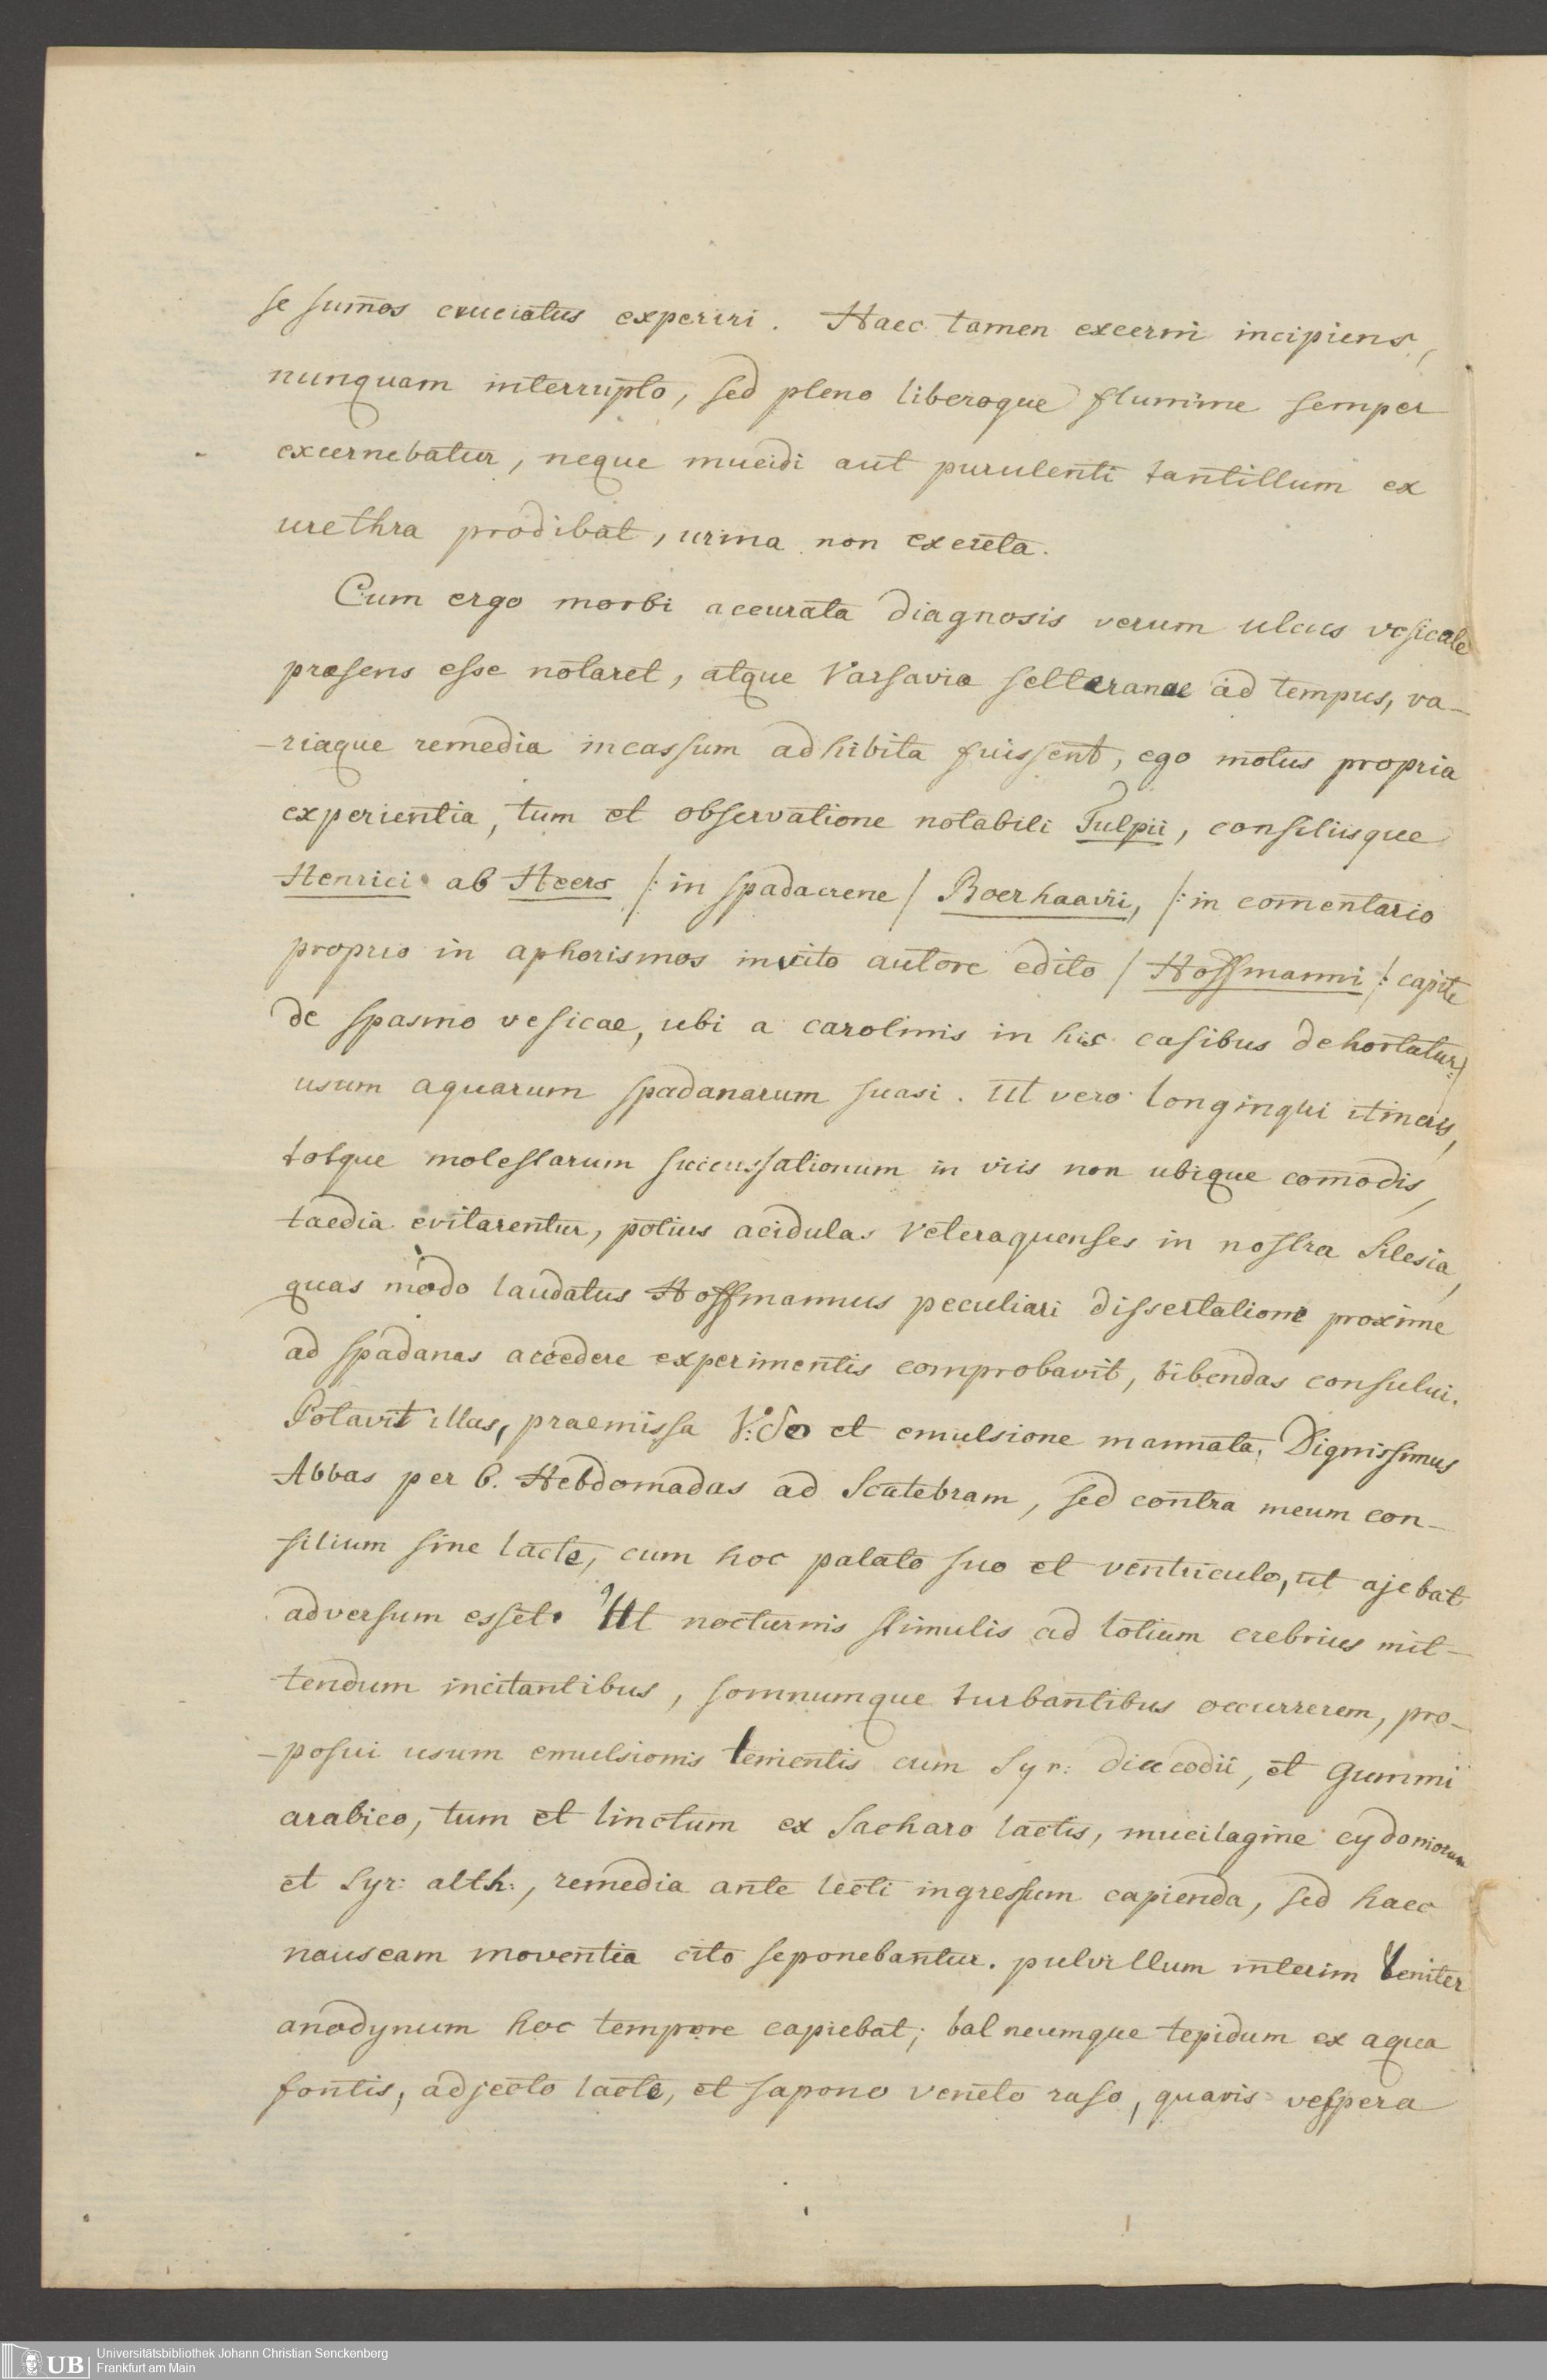 se sum̄os cruciatus experiri. Haec tamen excerni incipiens,
nunquam interrupto, sed pleno liberoque flumine semper
excernebatur, neque mucidi aut purulenti tantillum ex
urethra prodibat, urina non excreta.
Cum ergo morbi accurata diagnosis verum ulcus vesicale
praesens esse notaret, atque Varsavia selteranae ad tempus, va-
-riaque remedia incassum adhibita fuissent, ego motus propria
experientia, tum et observatione notabili Tulpii, consiliisque
Henrici ab Heers /: in spadacrene / Boerhaavii, /: in com̄entario
proprio in aphorismos invito autore edito / Hoffmanni /: capite
de spasmo vesicae, ubi a carolinis in his casibus dehortatur :/
usum aquarum spadanarum suasi. Ut vero longinqui itineris,
totque molestarum succussationum in viis non ubique com̄odis,
taedia evitarentur, potius acidulas Veteraquenses in nostra Silesia,
quas modo laudatus Hoffmannus peculiari dissertatione proxime
ad spadanas accedere experimentis comprobavit, bibendas consului.
Potavit illas, praemissa et emulsione mannata, Dignissimus
Abbas per 6. Hebdomadas ad Scatebram, sed contra meum con-
silium sine lacte, cum hoc palato suo et ventriculo, ut ajebat
adversum esset. Ut nocturnis stimulis ad lotium crebrius mit-
tendum incitantibus, somnumque turbantibus occurrerem, pro-
-posui usum emulsionis lenientis cum Syr: diacodii, et gummi
arabico, tum et linctum ex Sacharo lactis, mucilagine cydoniorum
et Syr: alth:, remedia ante lecti ingressum capienda, sed haec
nauseam moventia cito seponebantur. pulvillum interim leniter
anodynum hoc tempore capiebat; balneumque tepidum ex aqua
fontis, adjecto lacte, et sapone veneto raso, quavis vespera
Universitätsbibliothek Johann Christian Senckenberg
Frankfurt am Main
UB